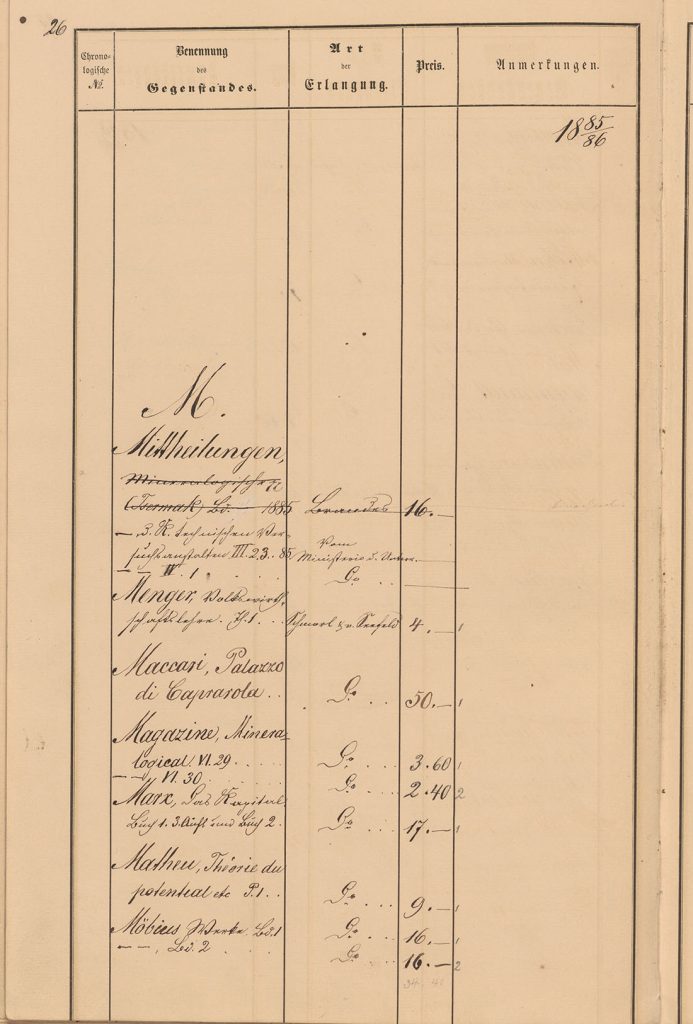 26
Chrono-
logische
№.
Benennung
des
Gegenstandes.
Art
der
Erlangung.
Preis.
Anmerkungen.
18 85/86
M.
Mittheilungen,
Mineralogische
(Tschermak) Bd. 1885 Brandes 16.—
— d. K. technischen Ver-
suchsanstalten III. 2.3. 85 Vom Ministerio d.
— — IV. 1 Do
Menger, Volkswirth-
schaftslehre. Th. 1. Schmorl & v. Seefeld 4.— 1
Maccari, Palazzo
di Caprarola . . Do . . . 50.— 1
Magazine, Minera-
logical VI. 29 . . . . Do . . . 3.60 1
— — VI. 30 Do . . . 2.40 2
Marx, Das Kapital
Buch 1. 3. Aufl und Buch 2. Do . . . 17.— 1
Mathieu, Théorie du
potential etc P. 1. . Do . . . 9.— 1
Möbius Werke Bd. 1 Do . . . 16.— 1
— —, Bd. 2 Do . . . 16.— 2